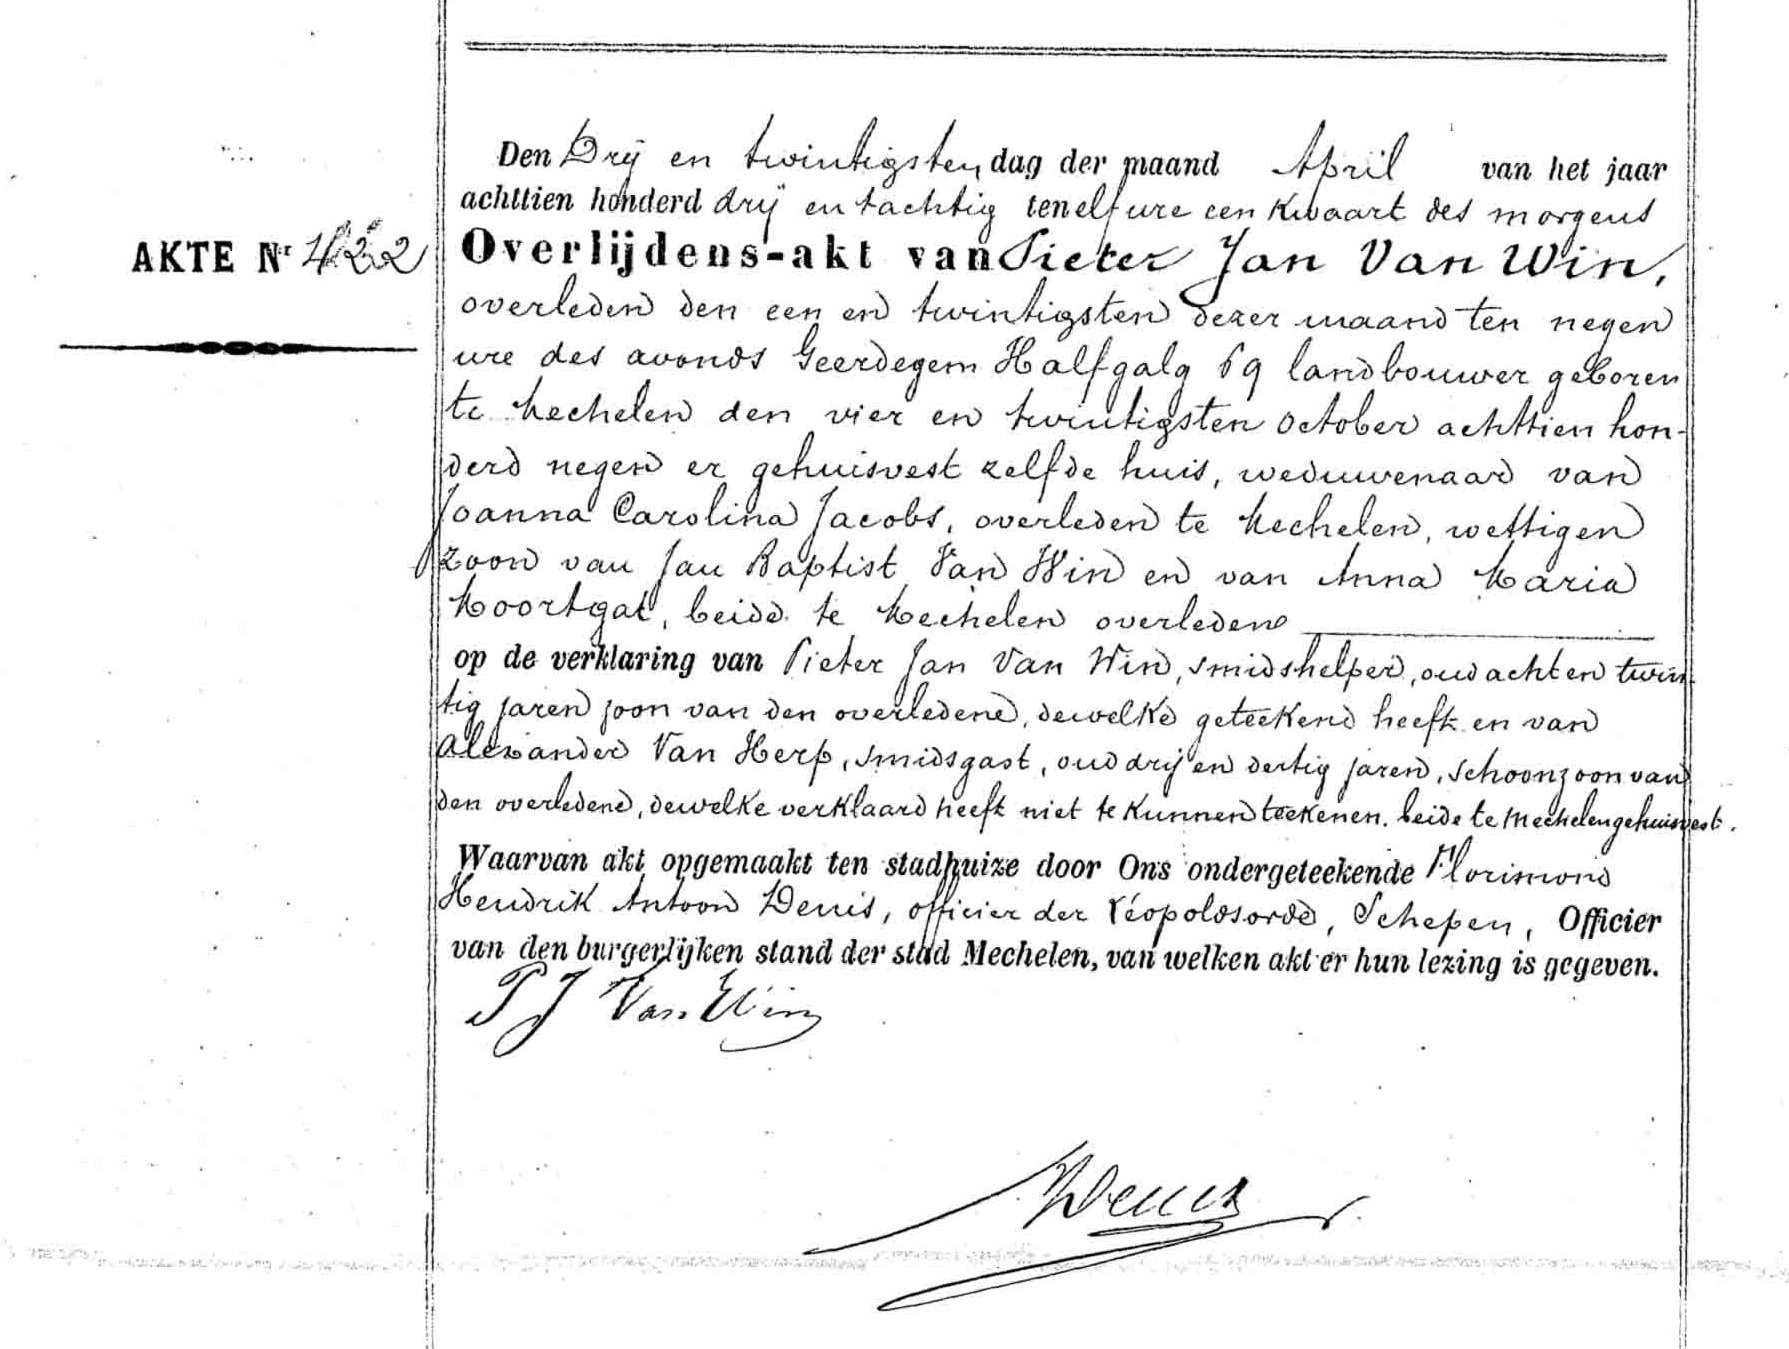 Den Drij en twintigsten dag der maand April van het jaar
achttien honderd drij en tachtig ten elf ure een kwaart des morgens
AKTE Nr 422
Overlijdens-akt van Pieter Jan Van Win,
overleden den een en twintigsten dezer maand ten negen
ure des avonds Geerdegem Halfgalg 69 landbouwer geboren
te Mechelen den vier en twintigsten October achttien hon-
derd negen er gehuisvest zelfde huis, weduwenaar van
Joanna Carolina Jacobs, overleden te Mechelen, wettigen
zoon van Jan Baptist Van Win en van Anna Maria
Moortgat, beide te Mechelen overleden
op de verklaring van Pieter Jan Van Win, smidshelper, oud acht en twin-
tig jaren zoon van den overledene, dewelke geteekend heeft en van
Alexander Van Herp, smidsgast, oud drij en dertig jaren, schoonzoon van
den overledene, dewelke verklaard heeft niet te kunnen teekenen. beide te Mechelen gehuisvest.
Waarvan akt opgemaakt ten stadhuize door Ons ondergeteekende Florimond
Hendrik Antoon Denis, officier der Léopoldsorde, Schepen, Officier
van den burgerlijken stand der stad Mechelen, van welken akt er hun lezing is gegeven.
P J Van Win
Denis